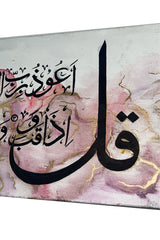 قل
أعوذ برب
إذا وقب